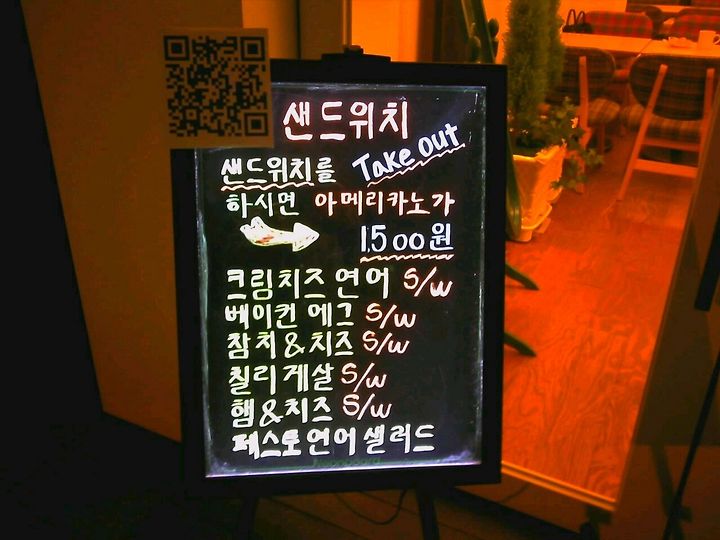 샌드위치
샌드위치를 Take out
하시면 아메리카노가
1,500원
크림치즈 연어 S/W
베이컨 에그 S/W
참치&치즈 S/W
칠리게살 S/W
햄&치즈 S/W
페스토연어샐러드